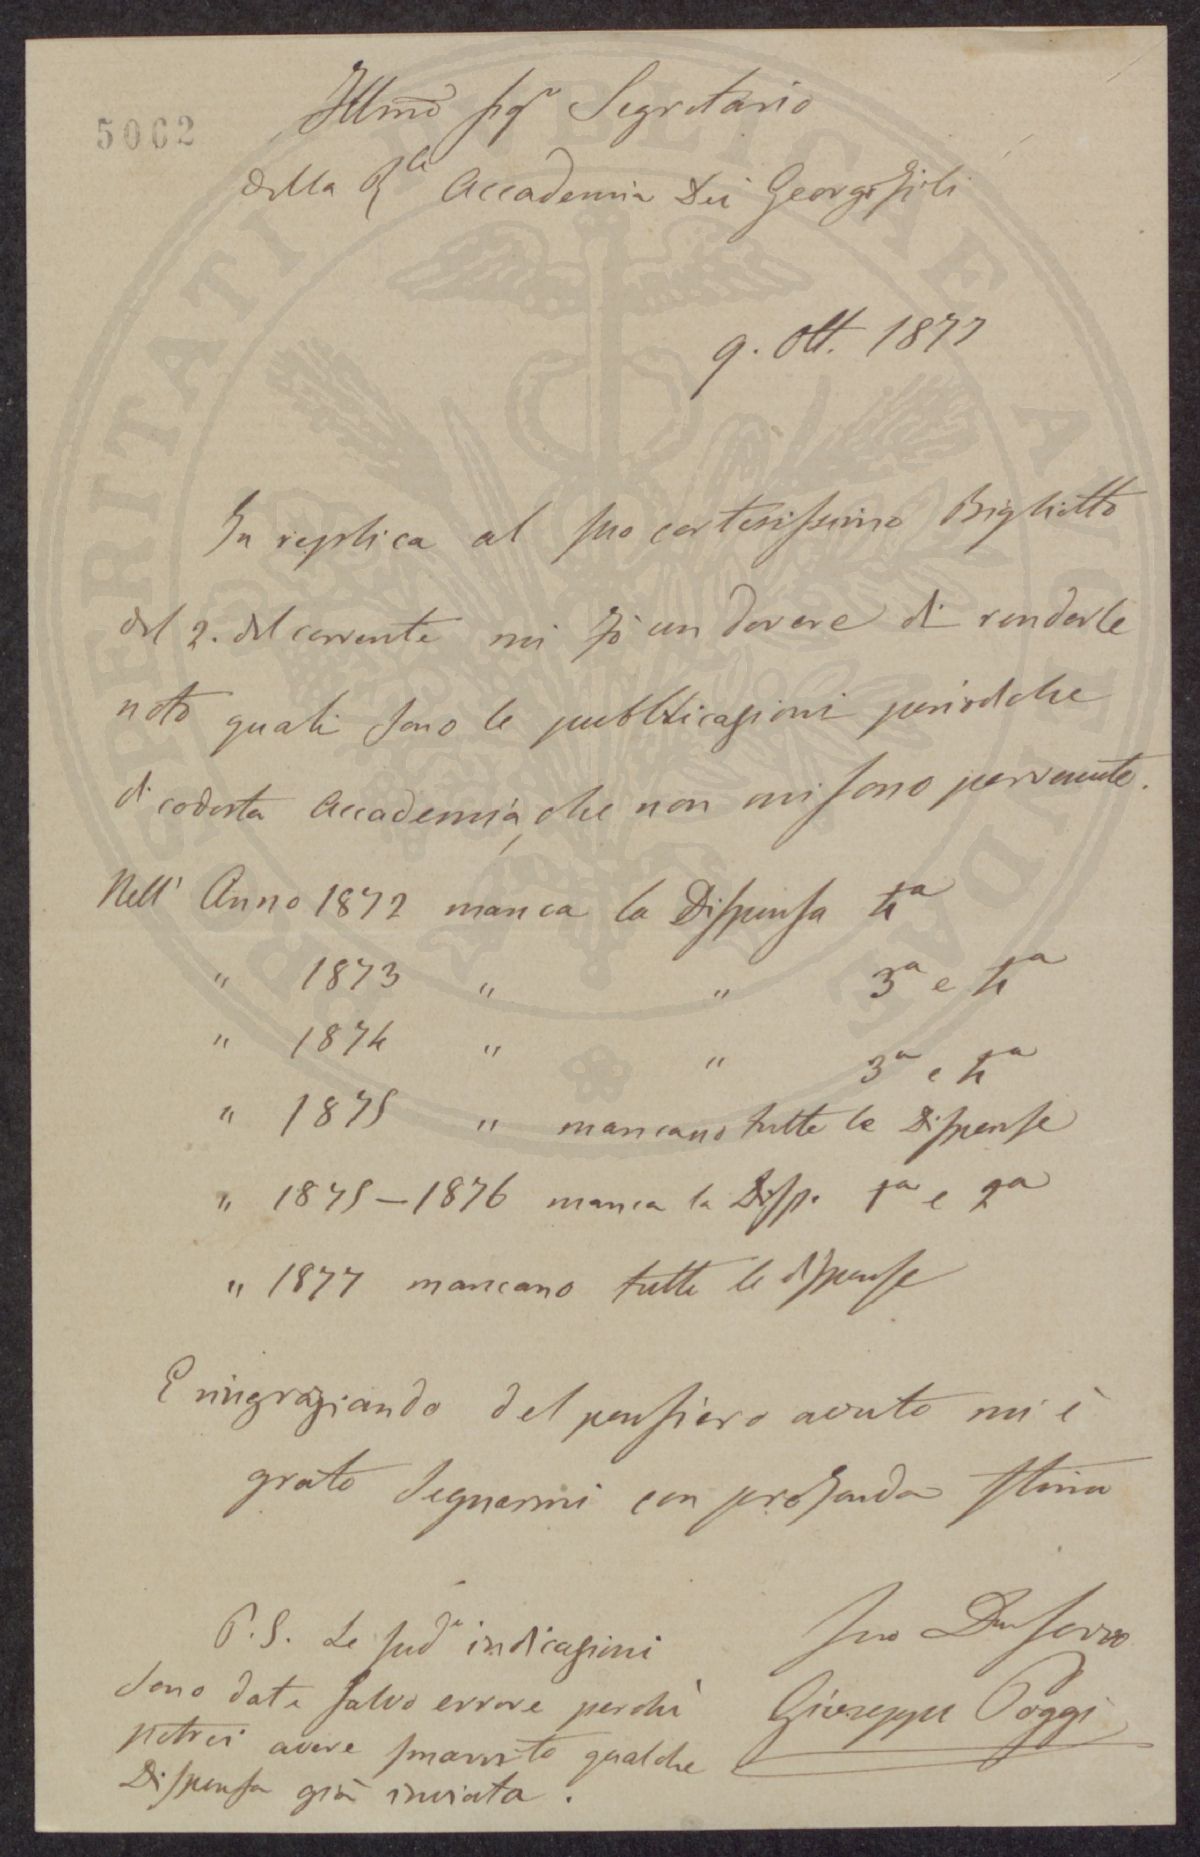 5062
Illmo Sigr Segretario
della Rle Accademia dei Georgofili
9. Ott. 1877
In replica al suo cortesissimo Biglietto
del 2. del corrente mi fò un dovere di renderle
noto quali sono le pubblicazioni periodiche
di codesta Accademia, che non mi sono pervenute.
Nell' Anno 1872 manca la Dispensa 4a
" 1873 " " 3a e 4a
" 1874 " " 3a e 4a
" 1875 " mancano tutte le Dispense
" 1875–1876 manca la Disp. 1a e 2a
" 1877 mancano tutte le dispense
E ringraziando del pensiero avuto mi è
grato segnarmi con profonda stima
Suo Devmo Servo
Giuseppe Poggi
P.S. Le sude indicazioni
sono date salvo errore perchè
potrei avere smarrito qualche
Dispensa già inviata.
PROSPERITATI PUBLICAE AUGENDAE